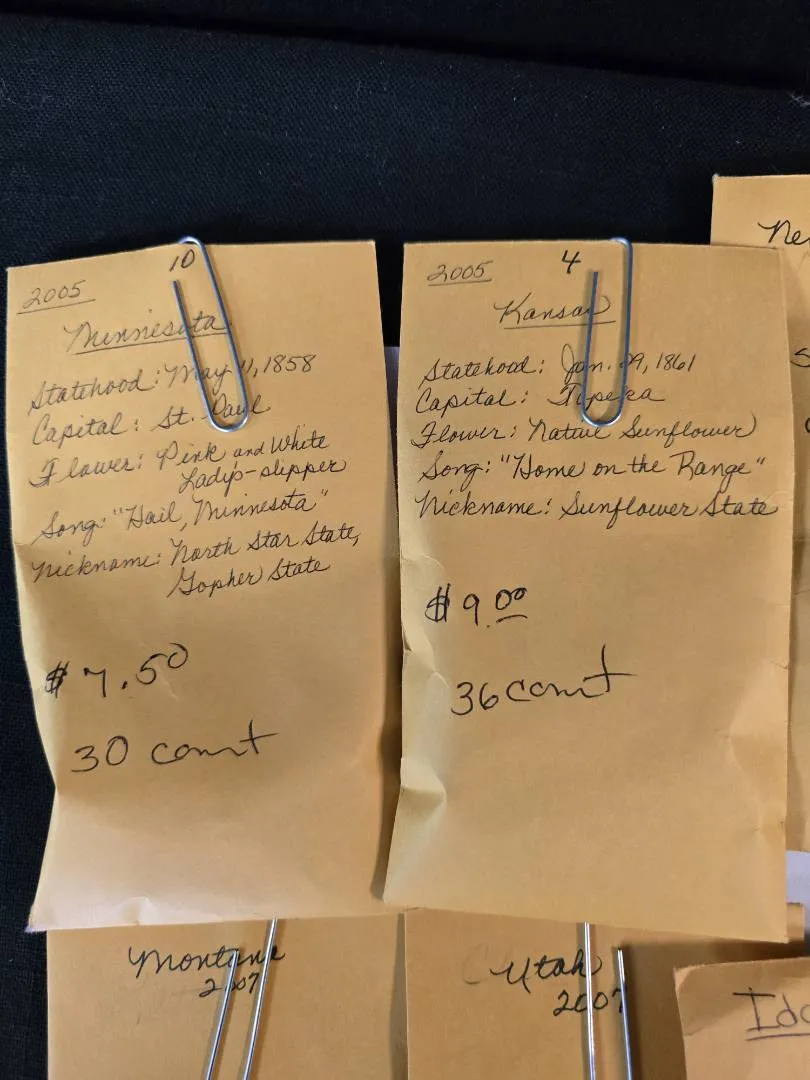 10
2005
Minnesota
Statehood: May 11, 1858
Capital: St. Paul
Flower: Pink and White
Lady's-slipper
Song: "Hail, Minnesota"
Nickname: North Star State,
Gopher State
$7.50
30 count
4
2005
Kansas
Statehood: Jan. 29, 1861
Capital: Topeka
Flower: Native Sunflower
Song: "Home on the Range"
Nickname: Sunflower State
$9.00
36 count
Montana
2007
Utah
2007